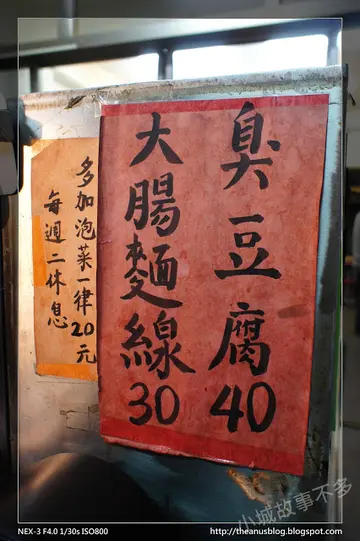 臭豆腐40
大腸麵線30
多加泡菜一律20元
每週二休息
小城故事不多
NEX-3 F4.0 1/30s ISO800
http://theanusblog.blogspot.com